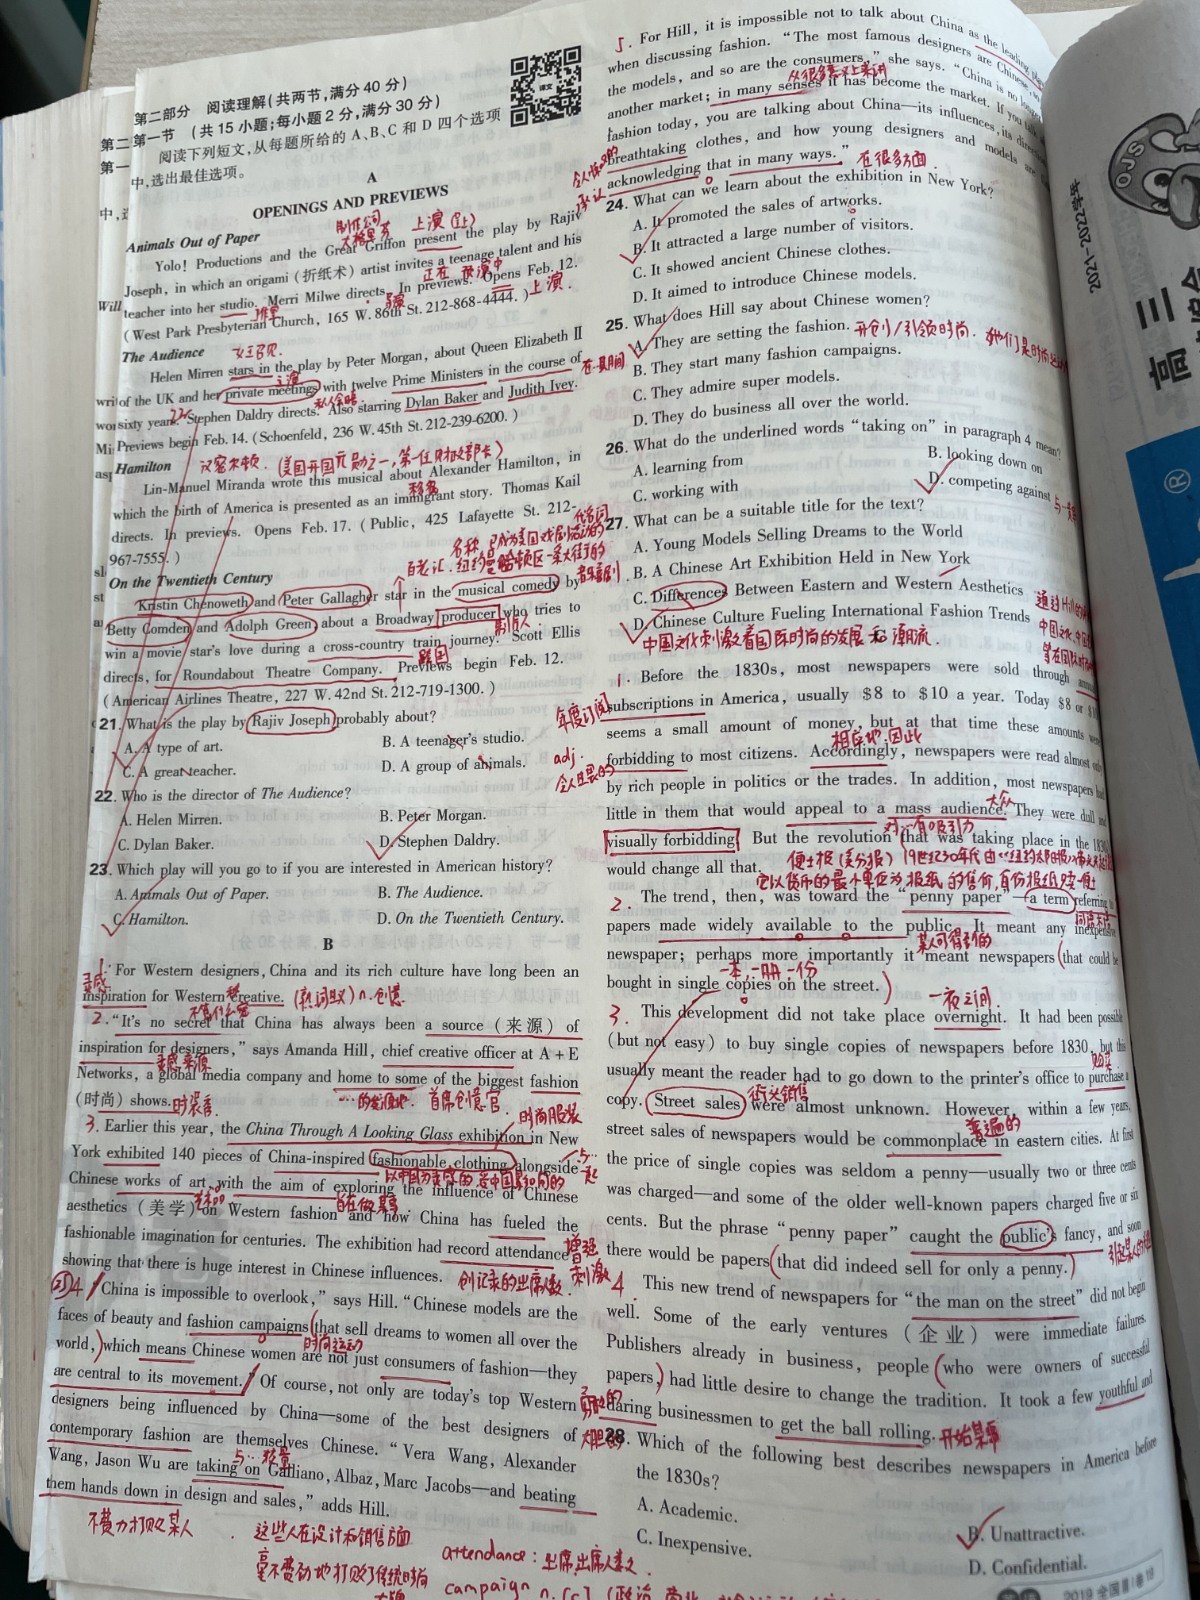 第二部分 阅读理解(共两节,满分40分)
第一节 (共15小题;每小题2分,满分30分)
阅读下列短文,从每题所给的A、B、C和D四个选项
中,选出最佳选项。
A
OPENINGS AND PREVIEWS
Animals Out of Paper
制作公司
上演(以上)
Yolo! Productions and the Great Griffon present the play by Rajiv
Joseph, in which an origami (折纸术) artist invites a teenage talent and his
正在预演中
teacher into her studio. Merri Milwe directs. In previews. Opens Feb. 12.
工作室
导演
上演.
(West Park Presbyterian Church, 165 W. 86th St. 212-868-4444.)
The Audience
女王召见.
Helen Mirren stars in the play by Peter Morgan, about Queen Elizabeth Ⅱ
主演
of the UK and her private meetings with twelve Prime Ministers in the course of
在…期间
私人会晤
sixty years. Stephen Daldry directs. Also starring Dylan Baker and Judith Ivey.
22
Previews begin Feb. 14. (Schoenfeld, 236 W. 45th St. 212-239-6200.)
Hamilton
汉密尔顿.(美国开国元勋之一,第一任财政部长)
Lin-Manuel Miranda wrote this musical about Alexander Hamilton, in
移民
which the birth of America is presented as an immigrant story. Thomas Kail
directs. In previews. Opens Feb. 17. (Public, 425 Lafayette St. 212-
967-7555.)
代名词
名称,已成为美国戏剧活动的
百老汇.纽约曼哈顿区一条大街的
On the Twentieth Century
音乐喜剧
Kristin Chenoweth and Peter Gallagher star in the musical comedy by
Betty Comden and Adolph Green, about a Broadway producer who tries to
制作人
win a movie star's love during a cross-country train journey. Scott Ellis
跨国
directs, for Roundabout Theatre Company. Previews begin Feb. 12.
(American Airlines Theatre, 227 W. 42nd St. 212-719-1300.)
21. What is the play by Rajiv Joseph probably about?
A. A type of art.
B. A teenager's studio.
C. A great teacher.
D. A group of animals.
22. Who is the director of The Audience?
A. Helen Mirren.
B. Peter Morgan.
C. Dylan Baker.
D. Stephen Daldry.
23. Which play will you go to if you are interested in American history?
A. Animals Out of Paper.
B. The Audience.
C. Hamilton.
D. On the Twentieth Century.
B
1. For Western designers, China and its rich culture have long been an
灵感
inspiration for Western creative.
(新词义) n.创意
2. "It's no secret that China has always been a source (来源) of
inspiration for designers," says Amanda Hill, chief creative officer at A+E
灵感来源
Networks, a global media company and home to some of the biggest fashion
(时尚) shows.
时装秀
…的发源地.
首席创意官.
时尚服装
3. Earlier this year, the China Through A Looking Glass exhibition in New
York exhibited 140 pieces of China-inspired fashionable clothing alongside
与…一起
Chinese works of art, with the aim of exploring the influence of Chinese
aesthetics (美学) on Western fashion and how China has fueled the
fashionable imagination for centuries. The exhibition had record attendance,
增强
刺激
showing that there is huge interest in Chinese influences.
创记录的出席人数.
25 4 "China is impossible to overlook," says Hill. "Chinese models are the
faces of beauty and fashion campaigns that sell dreams to women all over the
时尚运动
world, which means Chinese women are not just consumers of fashion—they
are central to its movement." Of course, not only are today's top Western
designers being influenced by China—some of the best designers of
contemporary fashion are themselves Chinese. "Vera Wang, Alexander
与…较量
Wang, Jason Wu are taking on Galliano, Albaz, Marc Jacobs—and beating
them hands down in design and sales," adds Hill.
不费力打败某人
这些人在设计和销售方面
毫不费劲地打败了传统时尚
大牌
attendance: 出席,出席人数.
campaign n. [C]
5. For Hill, it is impossible not to talk about China as the leading
when discussing fashion. "The most famous designers are Chinese, so
the models, and so are the consumers," she says. "China is no longer
从很多意义上来讲
another market; in many senses it has become the market. If you talk
fashion today, you are talking about China—its influences, its
breathtaking clothes, and how young designers and models are
令人惊叹的
acknowledging that in many ways."
承认
在很多方面.
24. What can we learn about the exhibition in New York?
A. It promoted the sales of artworks.
B. It attracted a large number of visitors.
C. It showed ancient Chinese clothes.
D. It aimed to introduce Chinese models.
25. What does Hill say about Chinese women?
A. They are setting the fashion.
开创/引领时尚.
B. They start many fashion campaigns.
C. They admire super models.
D. They do business all over the world.
26. What do the underlined words "taking on" in paragraph 4 mean?
A. learning from
B. looking down on
C. working with
D. competing against
27. What can be a suitable title for the text?
A. Young Models Selling Dreams to the World
B. A Chinese Art Exhibition Held in New York
C. Differences Between Eastern and Western Aesthetics
D. Chinese Culture Fueling International Fashion Trends
中国文化刺激着国际时尚的发展和潮流.
1. Before the 1830s, most newspapers were sold through
年度订阅
subscriptions in America, usually $8 to $10 a year. Today $8 or
seems a small amount of money, but at that time these amounts were
相应地.因此
forbidding to most citizens. Accordingly, newspapers were read almost only
adj.
令人生畏的
by rich people in politics or the trades. In addition, most newspapers had
大众
little in them that would appeal to a mass audience. They were dull and
对…有吸引力
visually forbidding. But the revolution that was taking place in the 1830s
would change all that.
2. The trend, then, was toward the "penny paper"—a term referring to
papers made widely available to the public. It meant any inexpensive
某人可得到的
newspaper; perhaps more importantly it meant newspapers that could be
一本,一册,一份
bought in single copies on the street.
一夜之间.
3. This development did not take place overnight. It had been possible
(but not easy) to buy single copies of newspapers before 1830, but this
购买
usually meant the reader had to go down to the printer's office to purchase a
copy. Street sales were almost unknown. However, within a few years,
街头销售
普遍的
street sales of newspapers would be commonplace in eastern cities. At first
the price of single copies was seldom a penny—usually two or three cents
was charged—and some of the older well-known papers charged five or six
cents. But the phrase "penny paper" caught the public's fancy, and soon
there would be papers that did indeed sell for only a penny.
4. This new trend of newspapers for "the man on the street" did not begin
well. Some of the early ventures (企业) were immediate failures.
Publishers already in business, people who were owners of successful
papers, had little desire to change the tradition. It took a few youthful and
勇敢的
大胆的
daring businessmen to get the ball rolling.
开始某事
28. Which of the following best describes newspapers in America before
the 1830s?
A. Academic.
B. Unattractive.
C. Inexpensive.
D. Confidential.
2019 全国Ⅲ卷
OJS
2021—2022学年
高三
®